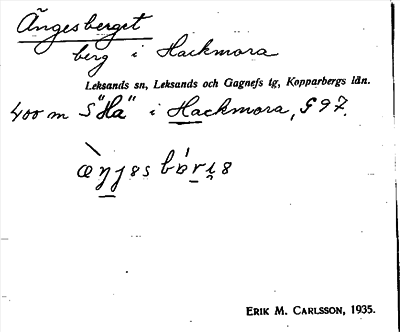 Ängesberget
berg i Hackmora
Leksands sn, Leksands och Gagnefs tg, Kopparbergs län.
400 m S "Ha" i Hackmora, G 97.
ERIK M. CARLSSON, 1935.